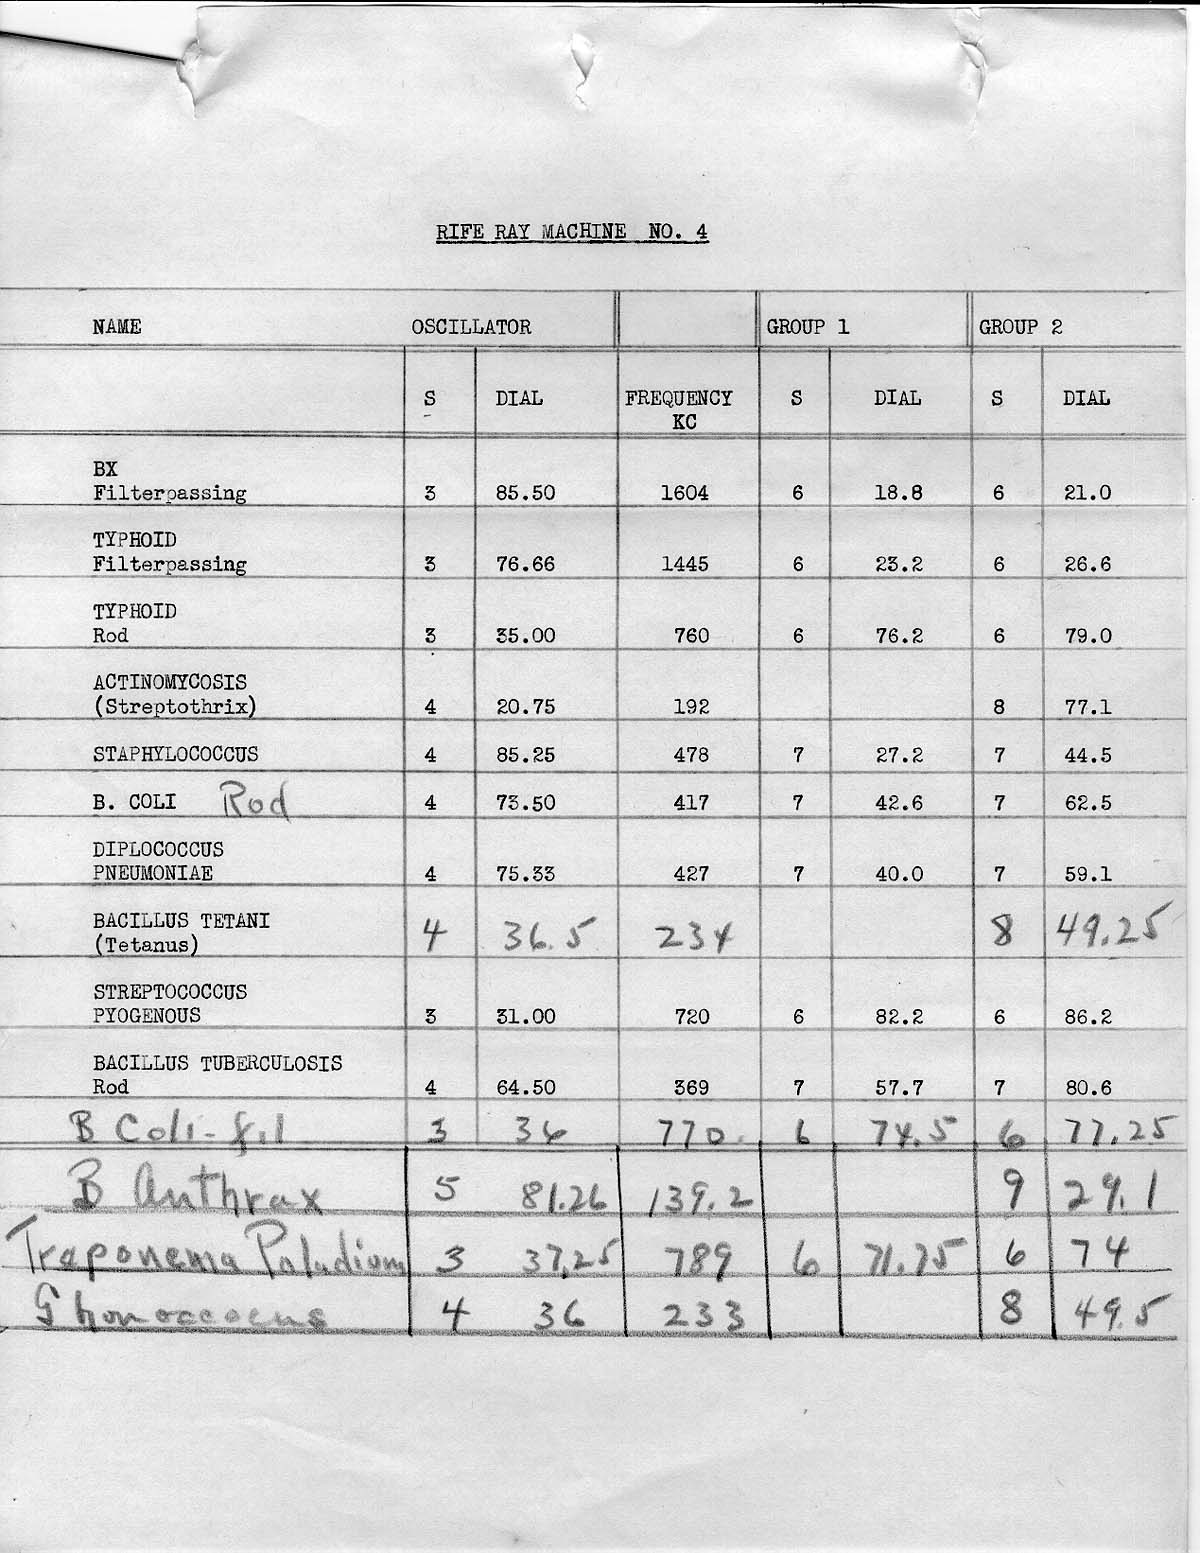 RIFE RAY MACHINE NO. 4
NAME OSCILLATOR GROUP 1 GROUP 2
S DIAL FREQUENCY S DIAL S DIAL
KC
BX
Filterpassing 3 85.50 1604 6 18.8 6 21.0
TYPHOID
Filterpassing 3 76.66 1445 6 23.2 6 26.6
TYPHOID
Rod 3 35.00 760 6 76.2 6 79.0
ACTINOMYCOSIS
(Streptothrix) 4 20.75 192 8 77.1
STAPHYLOCOCCUS 4 85.25 478 7 27.2 7 44.5
B. COLI Rod 4 73.50 417 7 42.6 7 62.5
DIPLOCOCCUS
PNEUMONIAE 4 75.33 427 7 40.0 7 59.1
BACILLUS TETANI
(Tetanus) 4 36.5 234 8 49.25
STREPTOCOCCUS
PYOGENOUS 3 31.00 720 6 82.2 6 86.2
BACILLUS TUBERCULOSIS
Rod 4 64.50 369 7 57.7 7 80.6
B Coli-fil 3 36 770 6 74.5 6 77.25
B Anthrax 5 81.26 139.2 9 29.1
Treponema Paladium 3 37.25 789 6 71.75 6 74
Ghonococcus 4 36 233 8 49.5